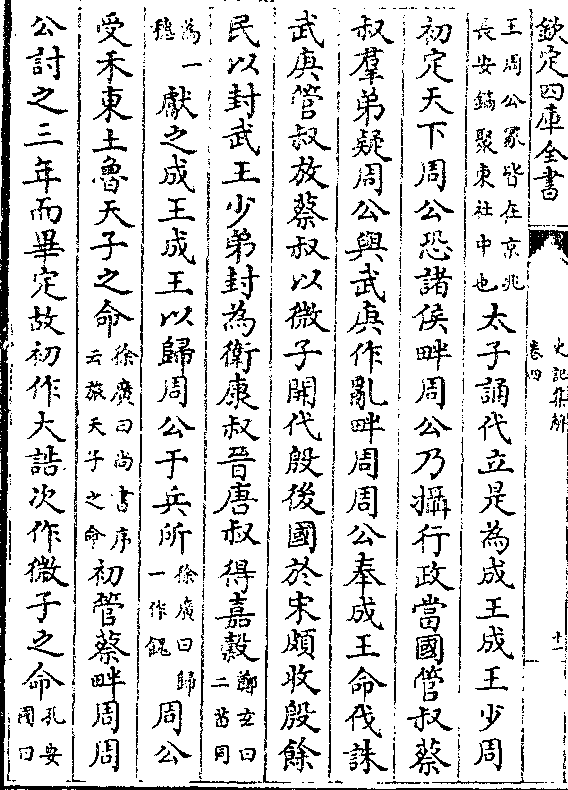 欽定四庫全書
史記集解
卷四
十一
王周公冢皆在京兆
長安鎬聚東社中也
太子誦代立是為成王成王少周
初定天下周公恐諸侯畔周公乃攝行政當國管叔蔡
叔羣弟疑周公與武庚作亂畔周周公奉成王命伐誅
武庚管叔放蔡叔以微子開代殷後國於宋頗收殷餘
民以封武王少弟封為衛康叔晉唐叔得嘉穀
鄭玄曰
二苗同
為一
穗
獻之成王成王以歸周公于兵所
徐廣曰歸
一作餽
周公
受禾東土魯天子之命
徐廣曰尚書序
云旅天子之命
初管蔡畔周周
公討之三年而畢定故初作大誥次作微子之命
孔安
國曰